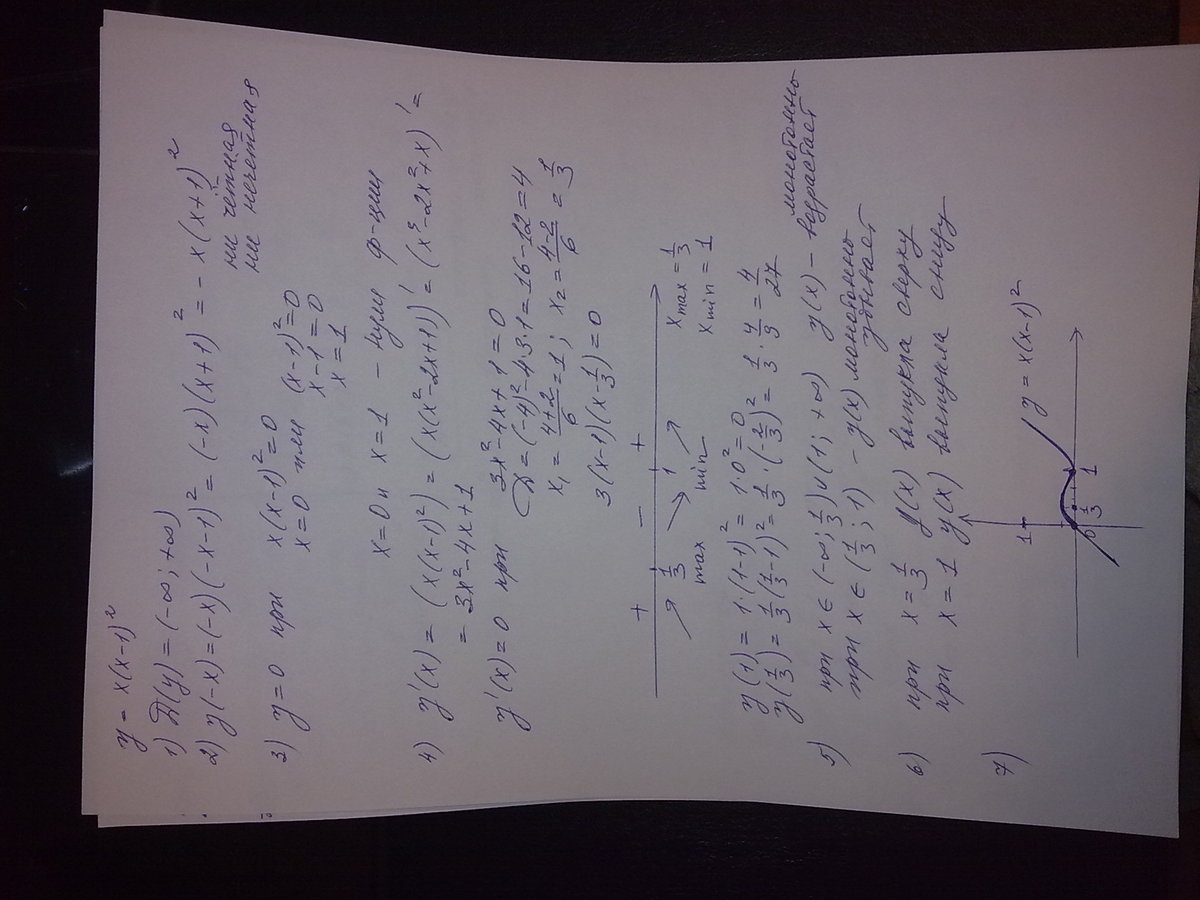 y = x(x-1)²
1) D(y) = (-∞; +∞)
2) y(-x) = (-x)(-x-1)² = (-x)(x+1)² = -x(x+1)²
ни чётная
ни нечетная
3) y = 0 при x(x-1)² = 0
x = 0 или (x-1)² = 0
x-1 = 0
x = 1
x = 0 и x = 1 - нули ф-ции
4) y'(x) = (x(x-1)²)' = (x(x²-2x+1))' = (x³-2x²+x)' =
= 3x²-4x+1
y'(x) = 0 при 3x²-4x+1 = 0
D = (-4)²-4·3·1 = 16-12 = 4
x₁ = (4+2)/6 = 1; x₂ = (4-2)/6 = 1/3
3(x-1)(x-1/3) = 0
+ - +
1/3 1
max min
x max = 1/3
x min = 1
y(1) = 1·(1-1)² = 1·0² = 0
y(1/3) = 1/3(1/3-1)² = 1/3·(-2/3)² = 1/3·4/9 = 4/27
5) при x ∈ (-∞; 1/3) ∪ (1; +∞) y(x) - монотонно возрастает
при x ∈ (1/3; 1) - y(x) монотонно убывает
6) при x = 1/3 y(x) выпукла сверху
при x = 1 y(x) выпукла снизу
7)
1
y = x(x-1)²
0 1/3 1